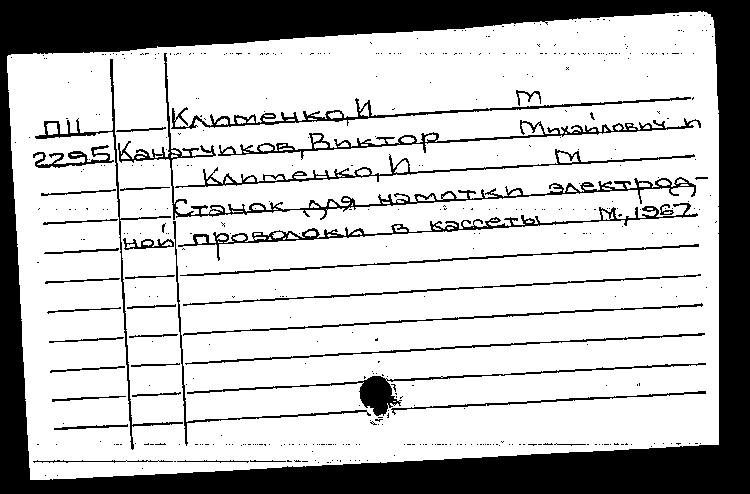 П11 Клименко, И М
2295 Канатчиков, Виктор Михайлович и
Клименко, И М
Станок для намотки электрод-
ной проволоки в кассеты М., 1967